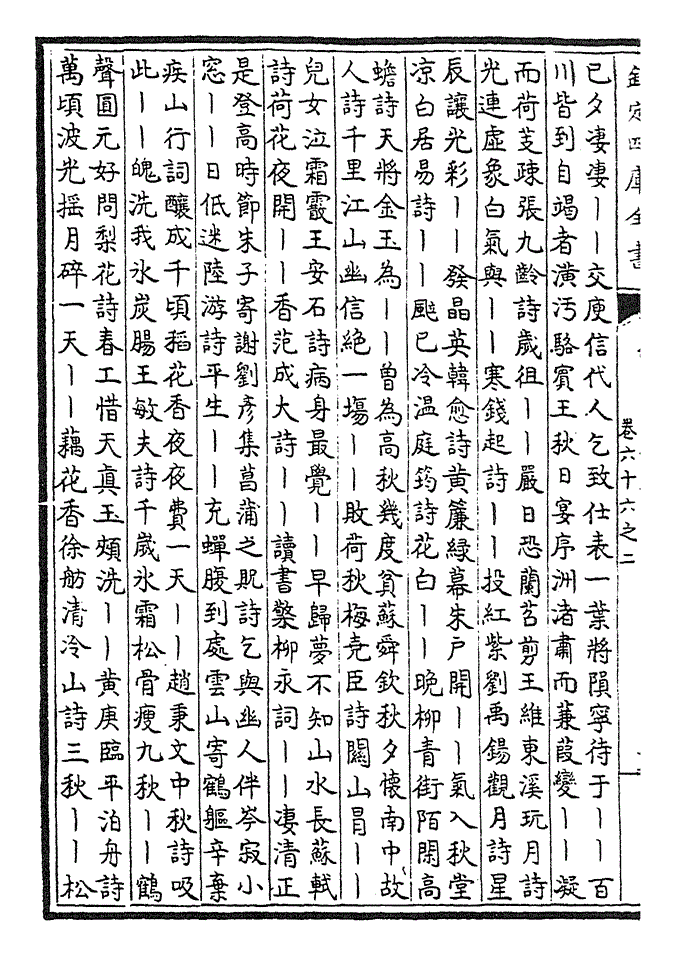 欽定四庫全書
卷六十六之二
已夕凄凄丨丨交庾信代人乞致仕表一葉將隕寧待于丨丨百
川皆到自竭者潢汚駱賓王秋日宴序洲渚肅而蒹葭變丨丨凝
而荷芰疎張九齡詩歲徂丨丨嚴日恐蘭苕剪王維東溪玩月詩
光連虚象白氣與丨丨寒錢起詩丨丨投紅紫劉禹錫觀月詩星
辰讓光彩丨丨發晶英韓愈詩黄簾緑幕朱户開丨丨氣入秋堂
凉白居易詩丨丨颭已冷温庭筠詩花白丨丨晚柳青街陌閑高
蟾詩天將金玉為丨丨曽為高秋幾度貧蘇舜欽秋夕懷南中故
人詩千里江山幽信絶一塲丨丨敗荷秋梅堯臣詩關山冒丨丨
兒女泣霜霰王安石詩病身最覺丨丨早歸夢不知山水長蘇軾
詩荷花夜開丨丨香范成大詩丨丨讀書檠柳永詞丨丨凄清正
是登高時節朱子寄謝劉彦集菖蒲之貺詩乞與幽人伴岑寂小
窓丨丨日低迷陸游詩平生丨丨充蟬腹到處雲山寄鶴軀辛棄
疾山行詞釀成千頃稻花香夜夜費一天丨丨趙秉文中秋詩吸
此丨丨魄洗我氷炭腸王敏夫詩千歲氷霜松骨瘦九秋丨丨鶴
聲圓元好問梨花詩春工惜天真玉頰洗丨丨黄庚臨平泊舟詩
萬頃波光揺月碎一天丨丨藕花香徐舫清泠山詩三秋丨丨松